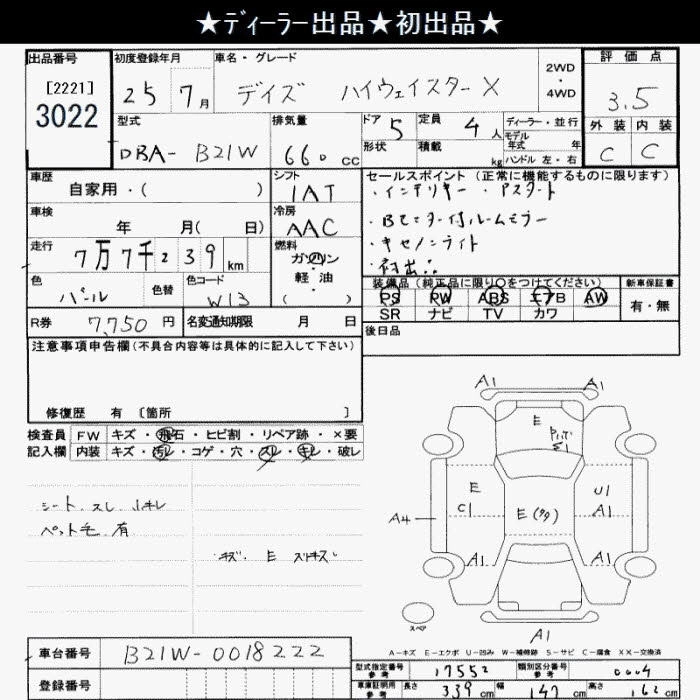 ★ディーラー出品★初出品★
出品番号
[2221]
3022
初度登録年月
25 7月
車名・グレード
デイズ ハイウェイスターX
2WD
・
4WD
評価点
3.5
外装 内装
C C
型式
DBA- B21W
排気量
660 cc
ドア 5
形状
定員 4 人
積載 kg
ディーラー・並行
モデル
年式 年
ハンドル 左・右
車歴
自家用・( )
シフト
IAT
セールスポイント (正常に機能するものに限ります)
・インテリキー ・Pスタート
・Bモニター付ルームミラー
・キセノンライト
・初出品
車検
年 月( 日)
冷房
AAC
走行
7万7千239 km
燃料
ガソリン
・
軽油
・
( )
色
パール
色替
色コード
W13
装備品(純正品に限り○をつけてください)
PS PW ABS エアB AW
SR ナビ TV カワ
新車保証書
有・無
R券 7,750 円
名変通知期限 月 日
後日品
注意事項申告欄(不具合内容等は具体的に記入して下さい)
修復歴 有 〔箇所 〕
検査員
記入欄
FW キズ・飛石・ヒビ割・リペア跡・×要
内装 キズ・汚れ・コゲ・穴・スレ・キレ・破レ
シート スレ 小キレ
ペット毛 有
キズ. E スリキズ
A1 A1
E
E
C1
E(タタ)
U1
A1
A4
A1 A1
A1
スペア
A-キズ E-エクボ U-凹み W-補修跡 S-サビ C-腐食 XX-交換済
車台番号
B21W-0018222
登録番号
型式指定番号
参考
17552
類別区分番号
参考
0004
車庫証明用
参考
長さ 339 cm 幅 147 cm 高さ 162 cm